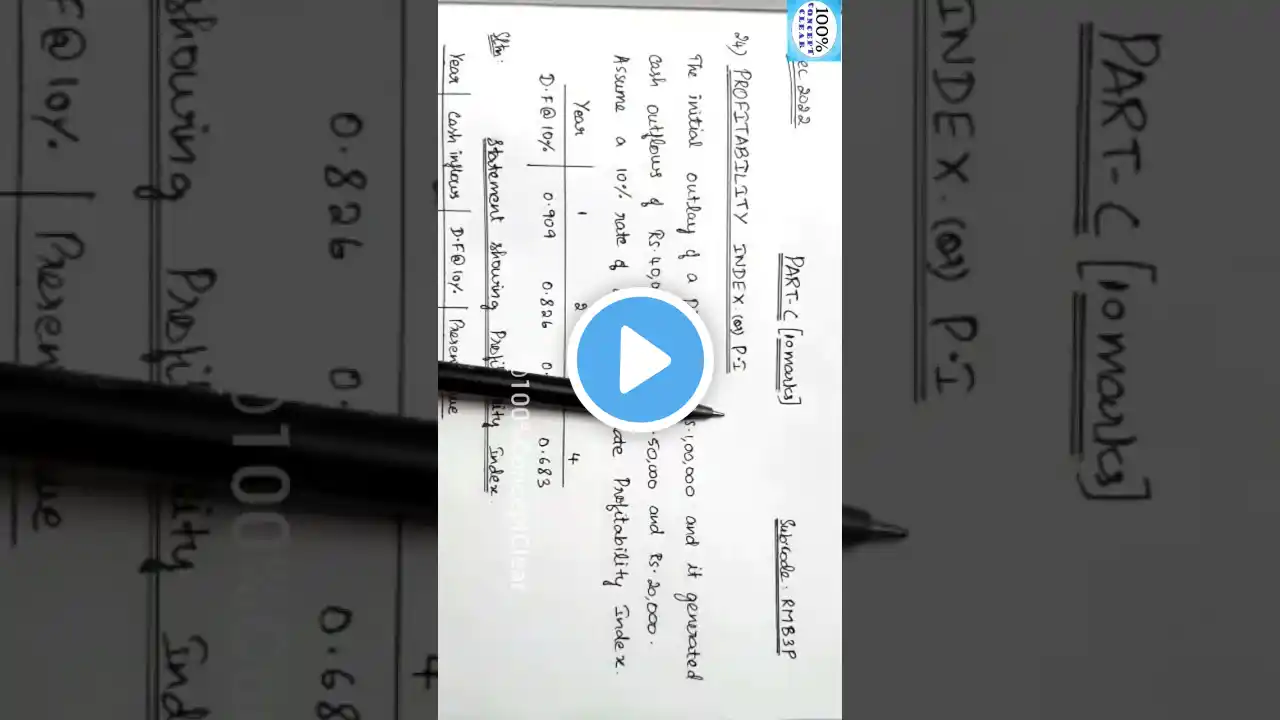 100%
CONCEPT
CLEAR
ec 2022
PART-C [10 marks]
Subcode: RMB3P
24) PROFITABILITY INDEX (or) P.I
The initial outlay of a s.1,00,000 and it generated
cash outflows of Rs.40,0 .50,000 and Rs.20,000.
Assume a 10% rate of ate Profitability Index.
Year 1 2 4
D.F@10% 0.909 0.826 0. 0.683
Sltn:
Statement showing Profi ity Index.
Year Cash inflows D.F@10% Presen ue
100% Concept Clear
PART-C [10 marks]
INDEX (or) P.I
0.826 0. 0.68
4
showing Profi ity Ind
F@10% Presen ue
0100